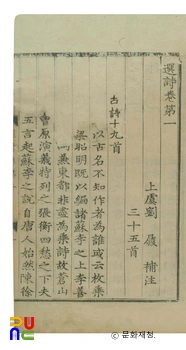 選詩卷第一
上虞劉履補注
三十五首
古詩十九首
以古名不知作者為誰或云枚乘
梁昭明旣以編諸蘇李之上李善
兼東都非盡為乘詩故蒼山
曾原演義特列之張衡四愁之下夫
五言起蘇李之說自唐人始然陳徐
© 문화재청.